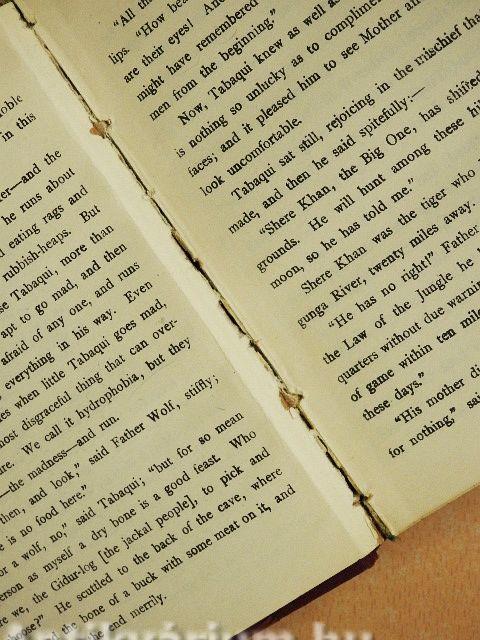 oble
in this
er—and the
he runs about
d eating rags and
rubbish-heaps. But
se Tabaqui, more than
apt to go mad, and then
afraid of any one, and runs
everything in his way. Even
es when little Tabaqui goes mad,
most disgraceful thing that can over-
ure. We call it hydrophobia, but they
—the madness—and run.
then, and look," said Father Wolf, stiffly;
e is no food here."
or a wolf, no," said Tabaqui; "but for so mean
erson as myself a dry bone is a good feast. Who
re we, the Gidur-log [the jackal people], to pick and
hoose?" He scuttled to the back of the cave, where
the bone of a buck with some meat on it, and
the end merrily.
"All th
lips. "How bea
are their eyes! And
might have remembered
men from the beginning."
Now, Tabaqui knew as well as
is nothing so unlucky as to complimen
faces; and it pleased him to see Mother an
look uncomfortable.
Tabaqui sat still, rejoicing in the mischief tha
made, and then he said spitefully:—
"Shere Khan, the Big One, has shifted
grounds. He will hunt among these hil
moon, so he has told me."
Shere Khan was the tiger who
gunga River, twenty miles away.
"He has no right!" Father
the Law of the Jungle he
quarters without due warnin
of game within ten mile
these days."
"His mother di
for nothing," sai
Antikvárium.hu